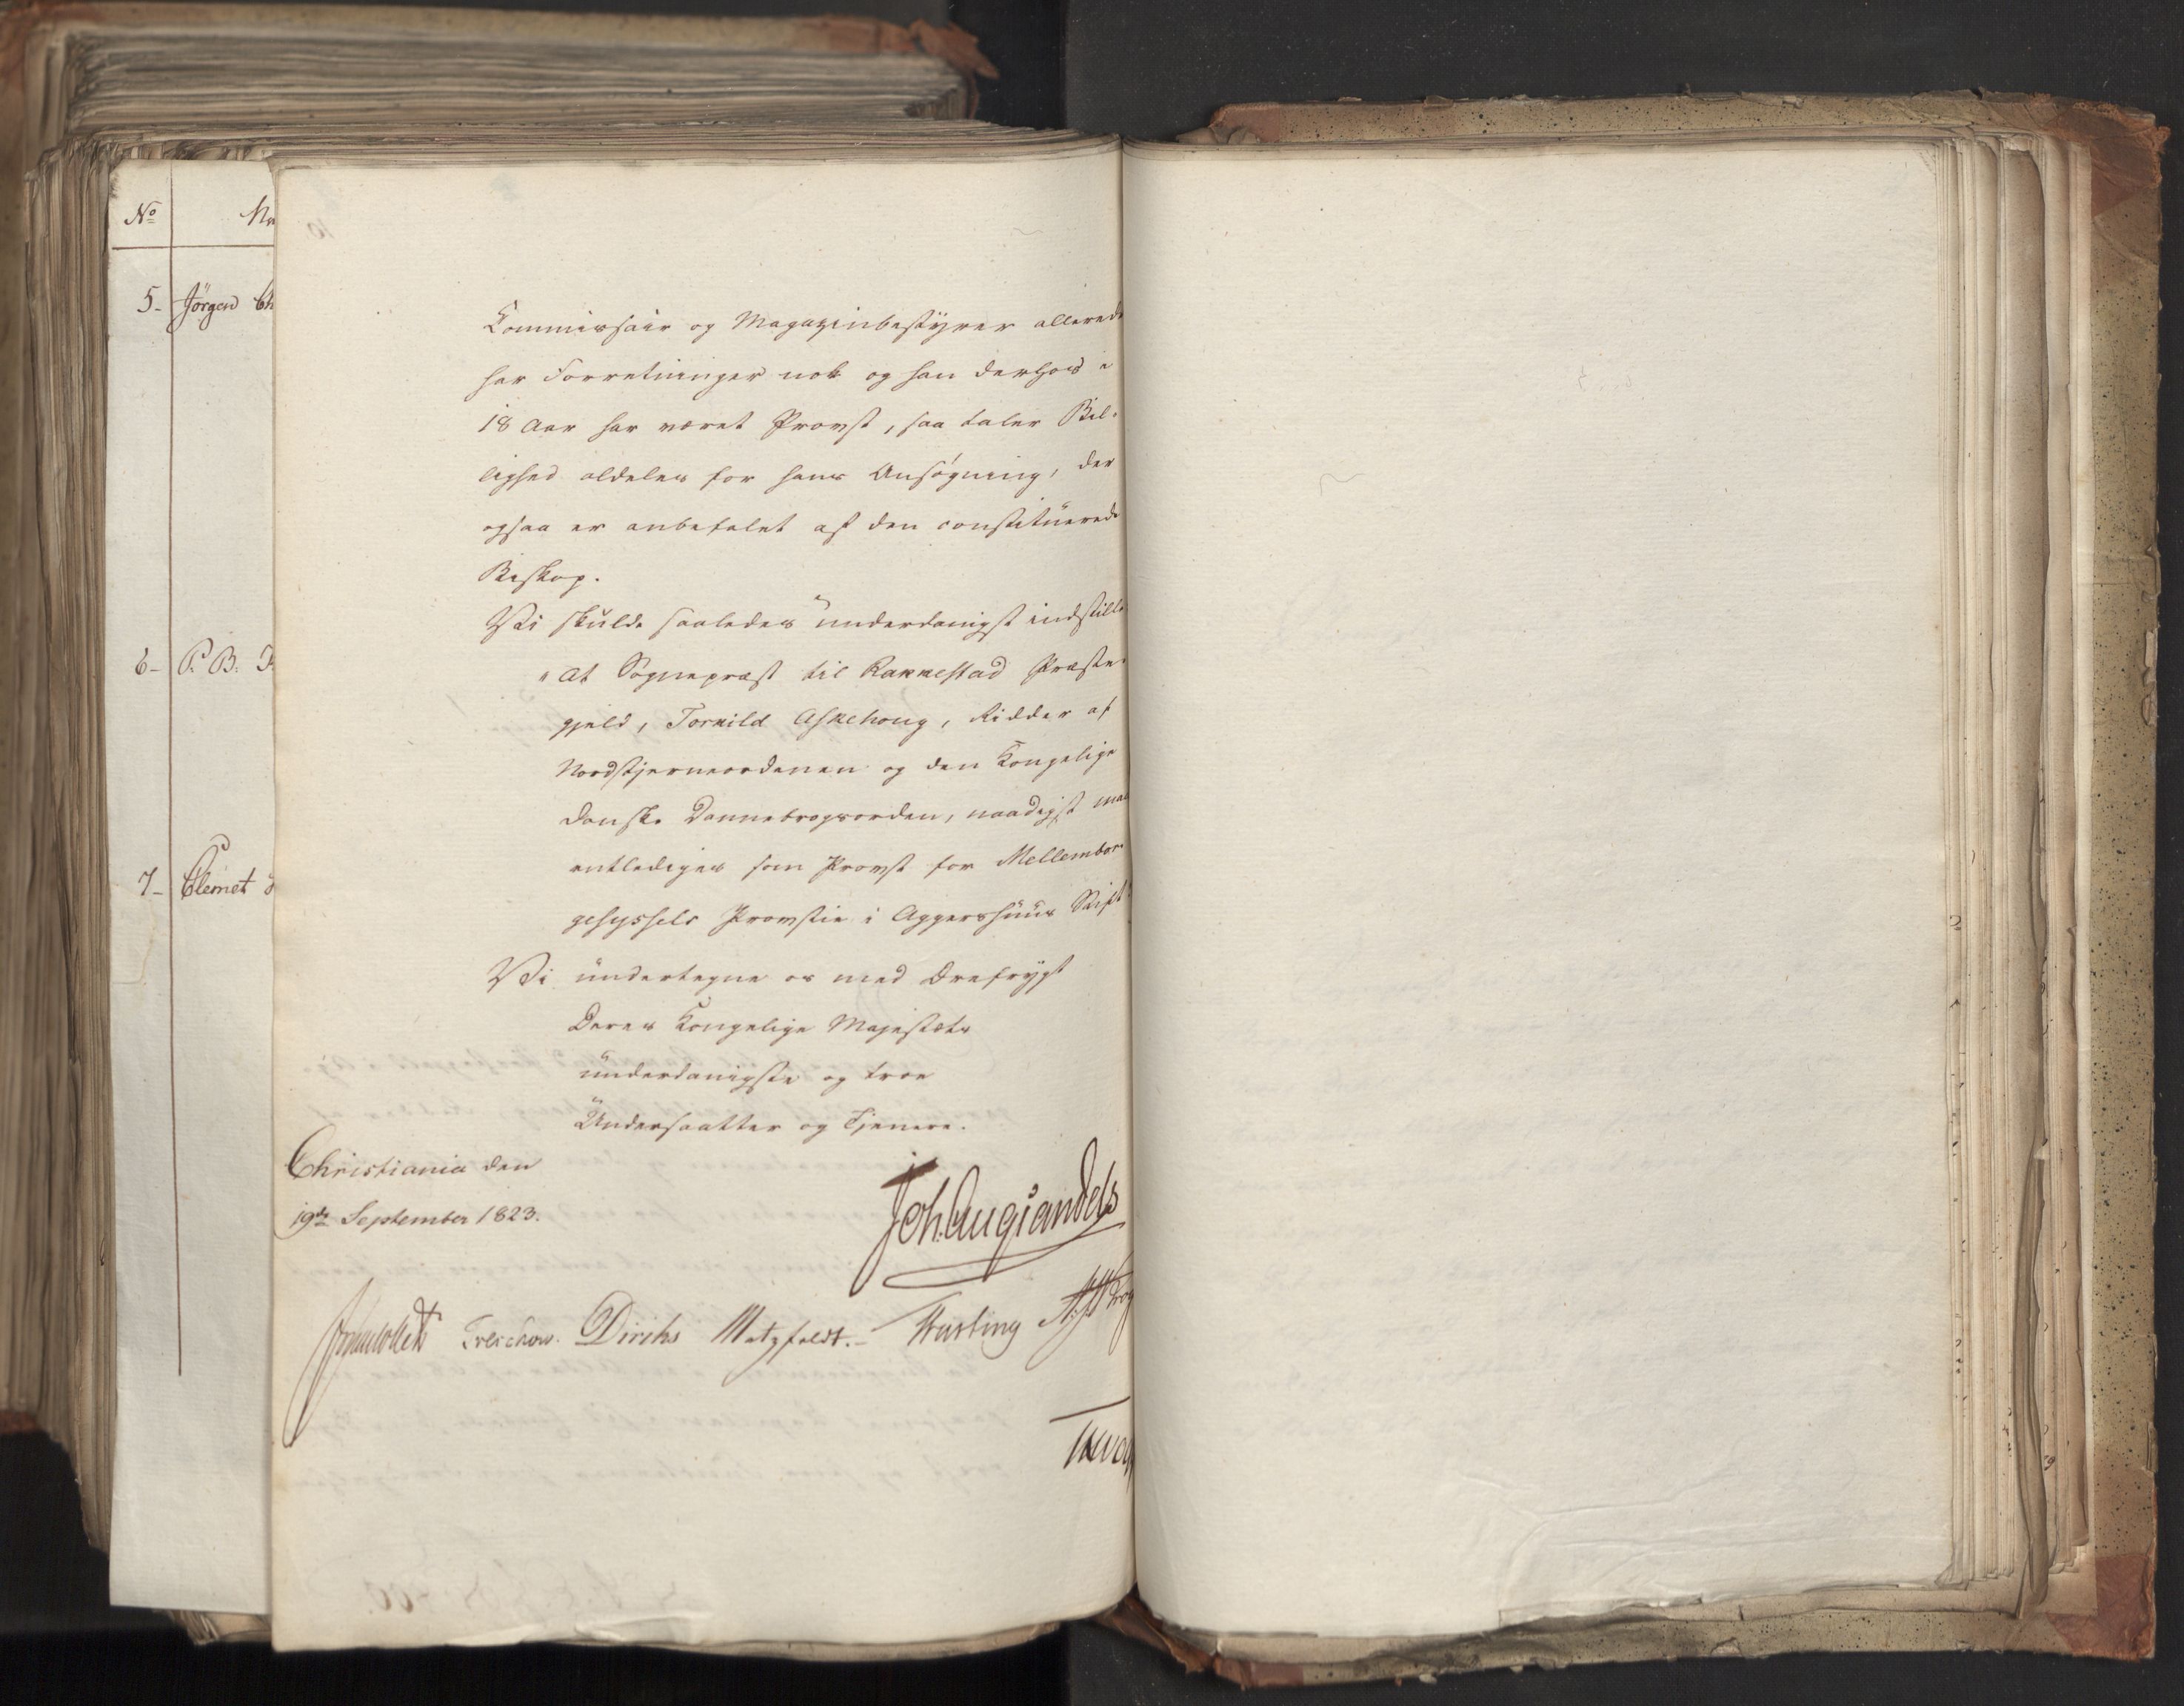 No
5- Jörgen Ch
6- P. B.
7- Clemet
Commissair og Magazinbestyrer allerede
har Forretninger nok og han derhos i
18 Aar har været Provst, saa taler Bil-
lighed aldeles for hans Ansøgning, der
ogsaa er anbefalet af den constituerede
Biskop.
Vi skulde saaledes underdanigst indstille
"At Sognepræst til Rakkestad Præste-
gjeld, Torkild Askehoug, Ridder af
Nordstjerneordenen og den Kongelige
danske Dannebrogsorden, naadigst maa
entlediges som Provst for Mellembor-
gesyssels Provstie i Aggershuus Stift
Vi undertegne os med Ærefrygt
Deres Kongelige Majestæts
underdanigste og troe
Undersaatter og Tjenere.
Christiania den
19de September 1823.
Joh. Aug Sandels
Treschow. Diriks Motzfeldt.